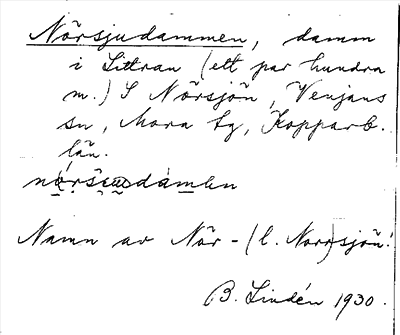 Nörsjudammen, damm
i Littran (ett par hundra
m.) S Nörsjön, Venjans
sn, Mora tg, Kopparb.
län.
Namn av Nör- (l. Norr)sjön!
B. Lindén 1930.